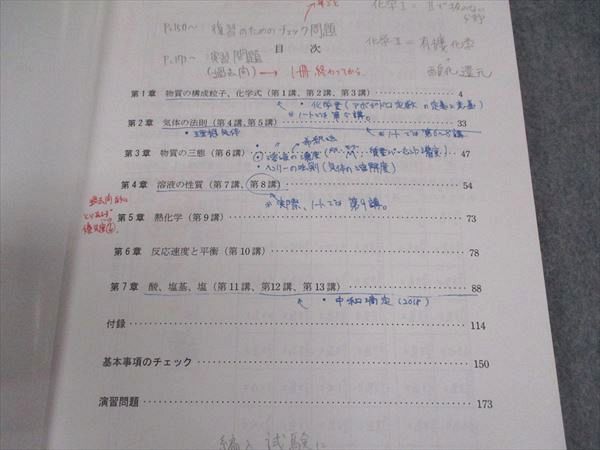 P.150〜 復習のためのチェック問題
P.173〜 演習問題
(過去問) → 1冊終わってから
目 次
化学Ⅱ = 有機化学
酸化還元
第1章 物質の構成粒子、化学式(第1講、第2講、第3講) 4
・化学量(アボガドロ定数の定義と定義)
※ノートでは第5講。
第2章 気体の法則(第4講、第5講) 33
・理想気体
※ノートでは第6〜8講
・希釈法
第3章 物質の三態(第6講) 47
・溶液の濃度
・ヘンリーの法則(気体の溶解度)
第4章 溶液の性質(第7講、第8講) 54
※実際、ノートでは第9講。
過去問
第5章 熱化学(第9講) 73
第6章 反応速度と平衡(第10講) 78
第7章 酸、塩基、塩(第11講、第12講、第13講) 88
・中和滴定(2018)
付録 114
基本事項のチェック 150
演習問題 173
編入試験に